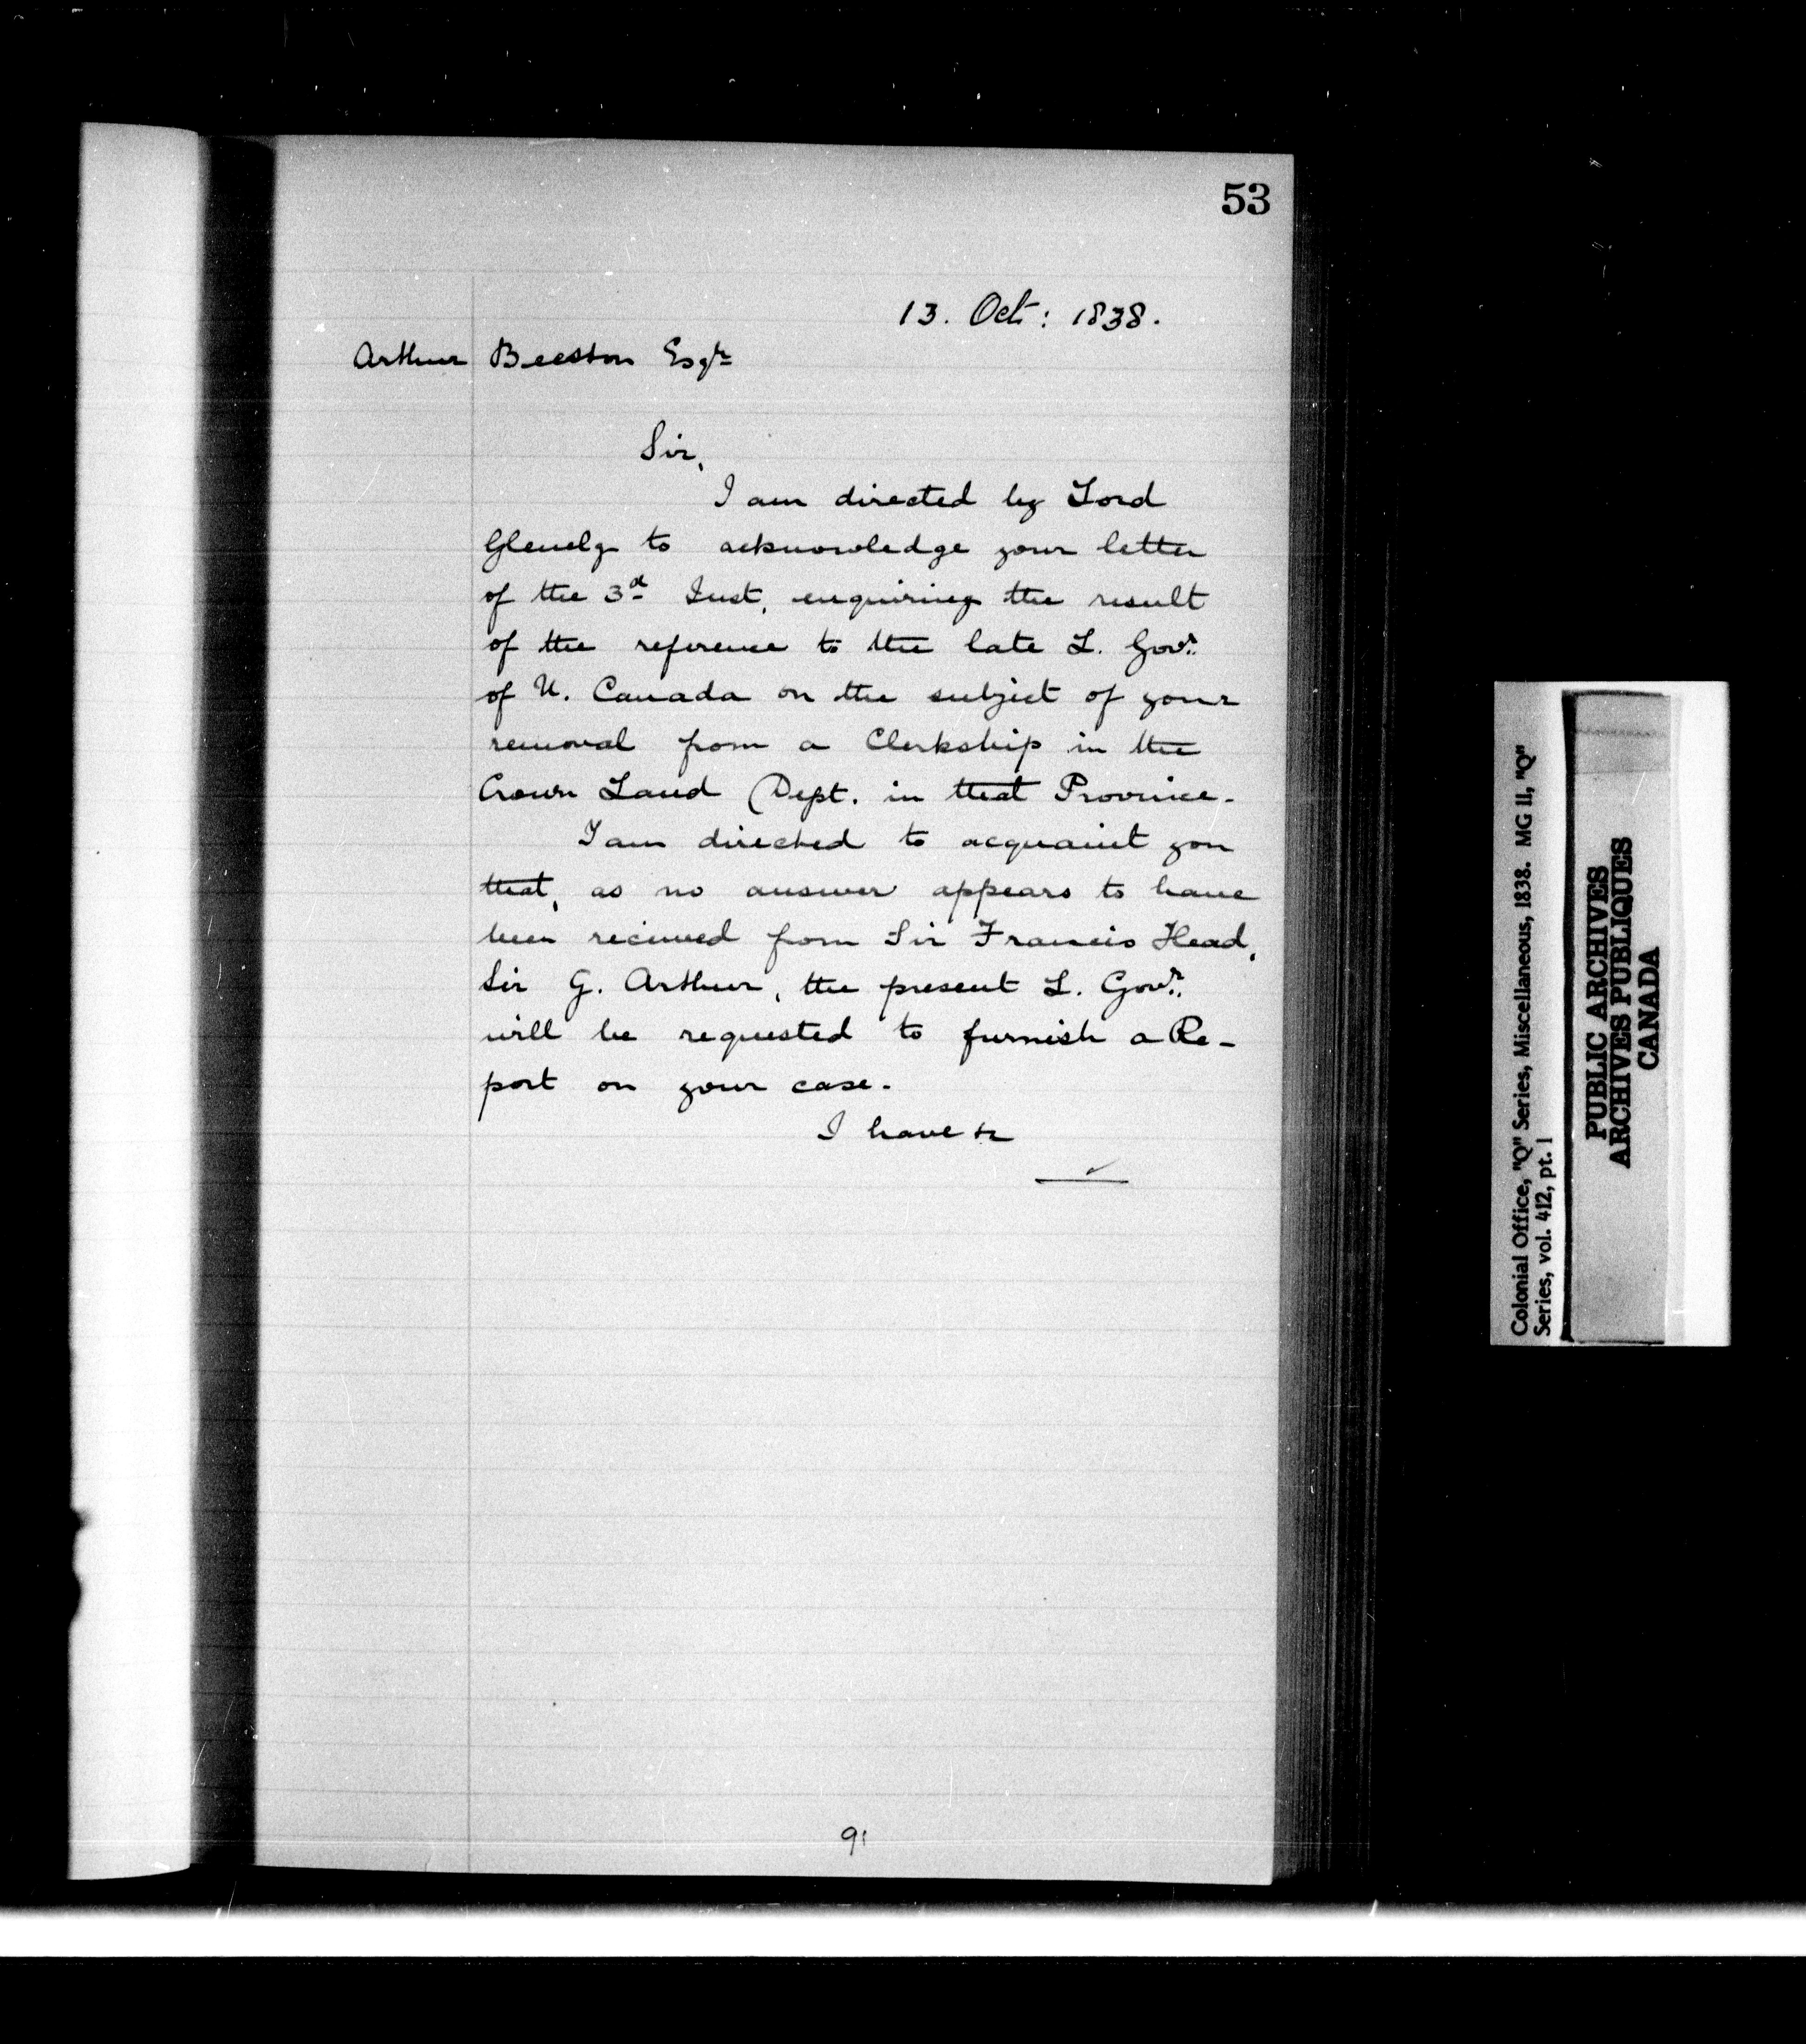 53
13. Oct: 1838.
Arthur Beeston Esqr
Sir,
I am directed by Lord
Glenelg to acknowledge your letter
of the 3d Inst, enquiring the result
of the reference to the late L. Govr.
of U. Canada on the subject of your
removal from a Clerkship in the
Crown Land Dept. in that Province.
I am directed to acquaint you
that, as no answer appears to have
been received from Sir Francis Head,
Sir G. Arthur, the present L. Govr.
will be requested to furnish a Re-
port on your case.
I have &c
91
Colonial Office, "Q" Series, Miscellaneous, 1838. MG 11, "Q"
Series, vol. 412, pt. 1
PUBLIC ARCHIVES
ARCHIVES PUBLIQUES
CANADA